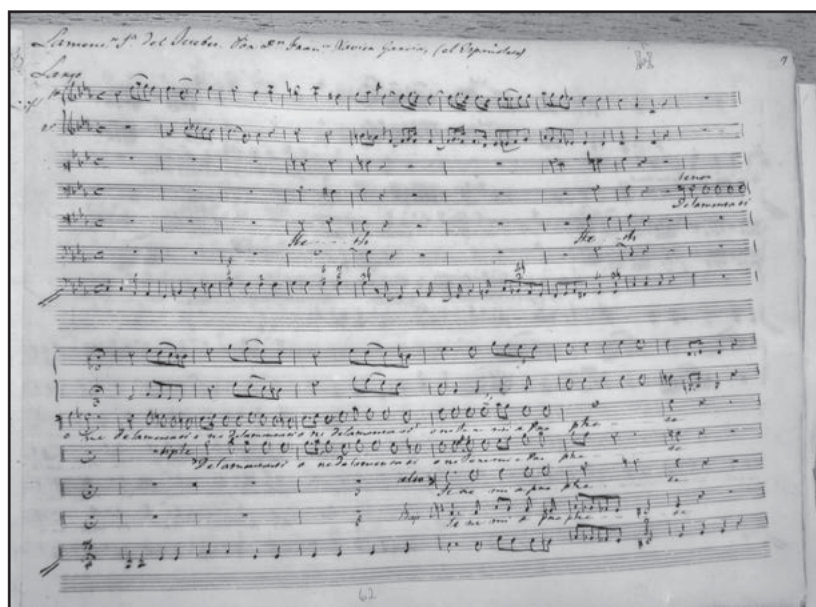 Lamenc.n 1.a del Juebes. Por Dn Fran.co Xavier Garcia, (el Españoleto)
Largo
tenor
De lamentasi
He - - th He - th
o ne De lamentasio ne De lamentasio ne De lamentasi o ne Je re mi e Pro phe - - te
tiple
De lamentasi o ne De lamentasi o ne Je re mi e Pro phe - - te
alto
Je re mi e pro phe - - te
Bajo
Je re mi e pro phe - - te
62